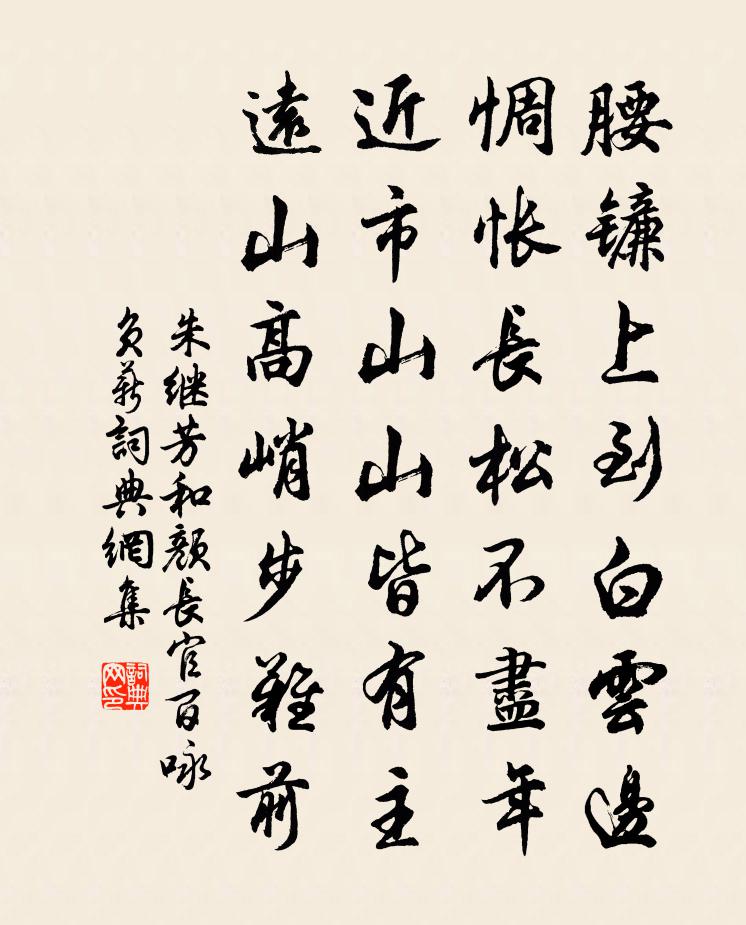 腰镰上到白雲邊
惆怅長松不盡年
近市山山皆有主
遠山高峭步難前
朱继芳和顏長官百咏
負薪詞典網集
詞典網印